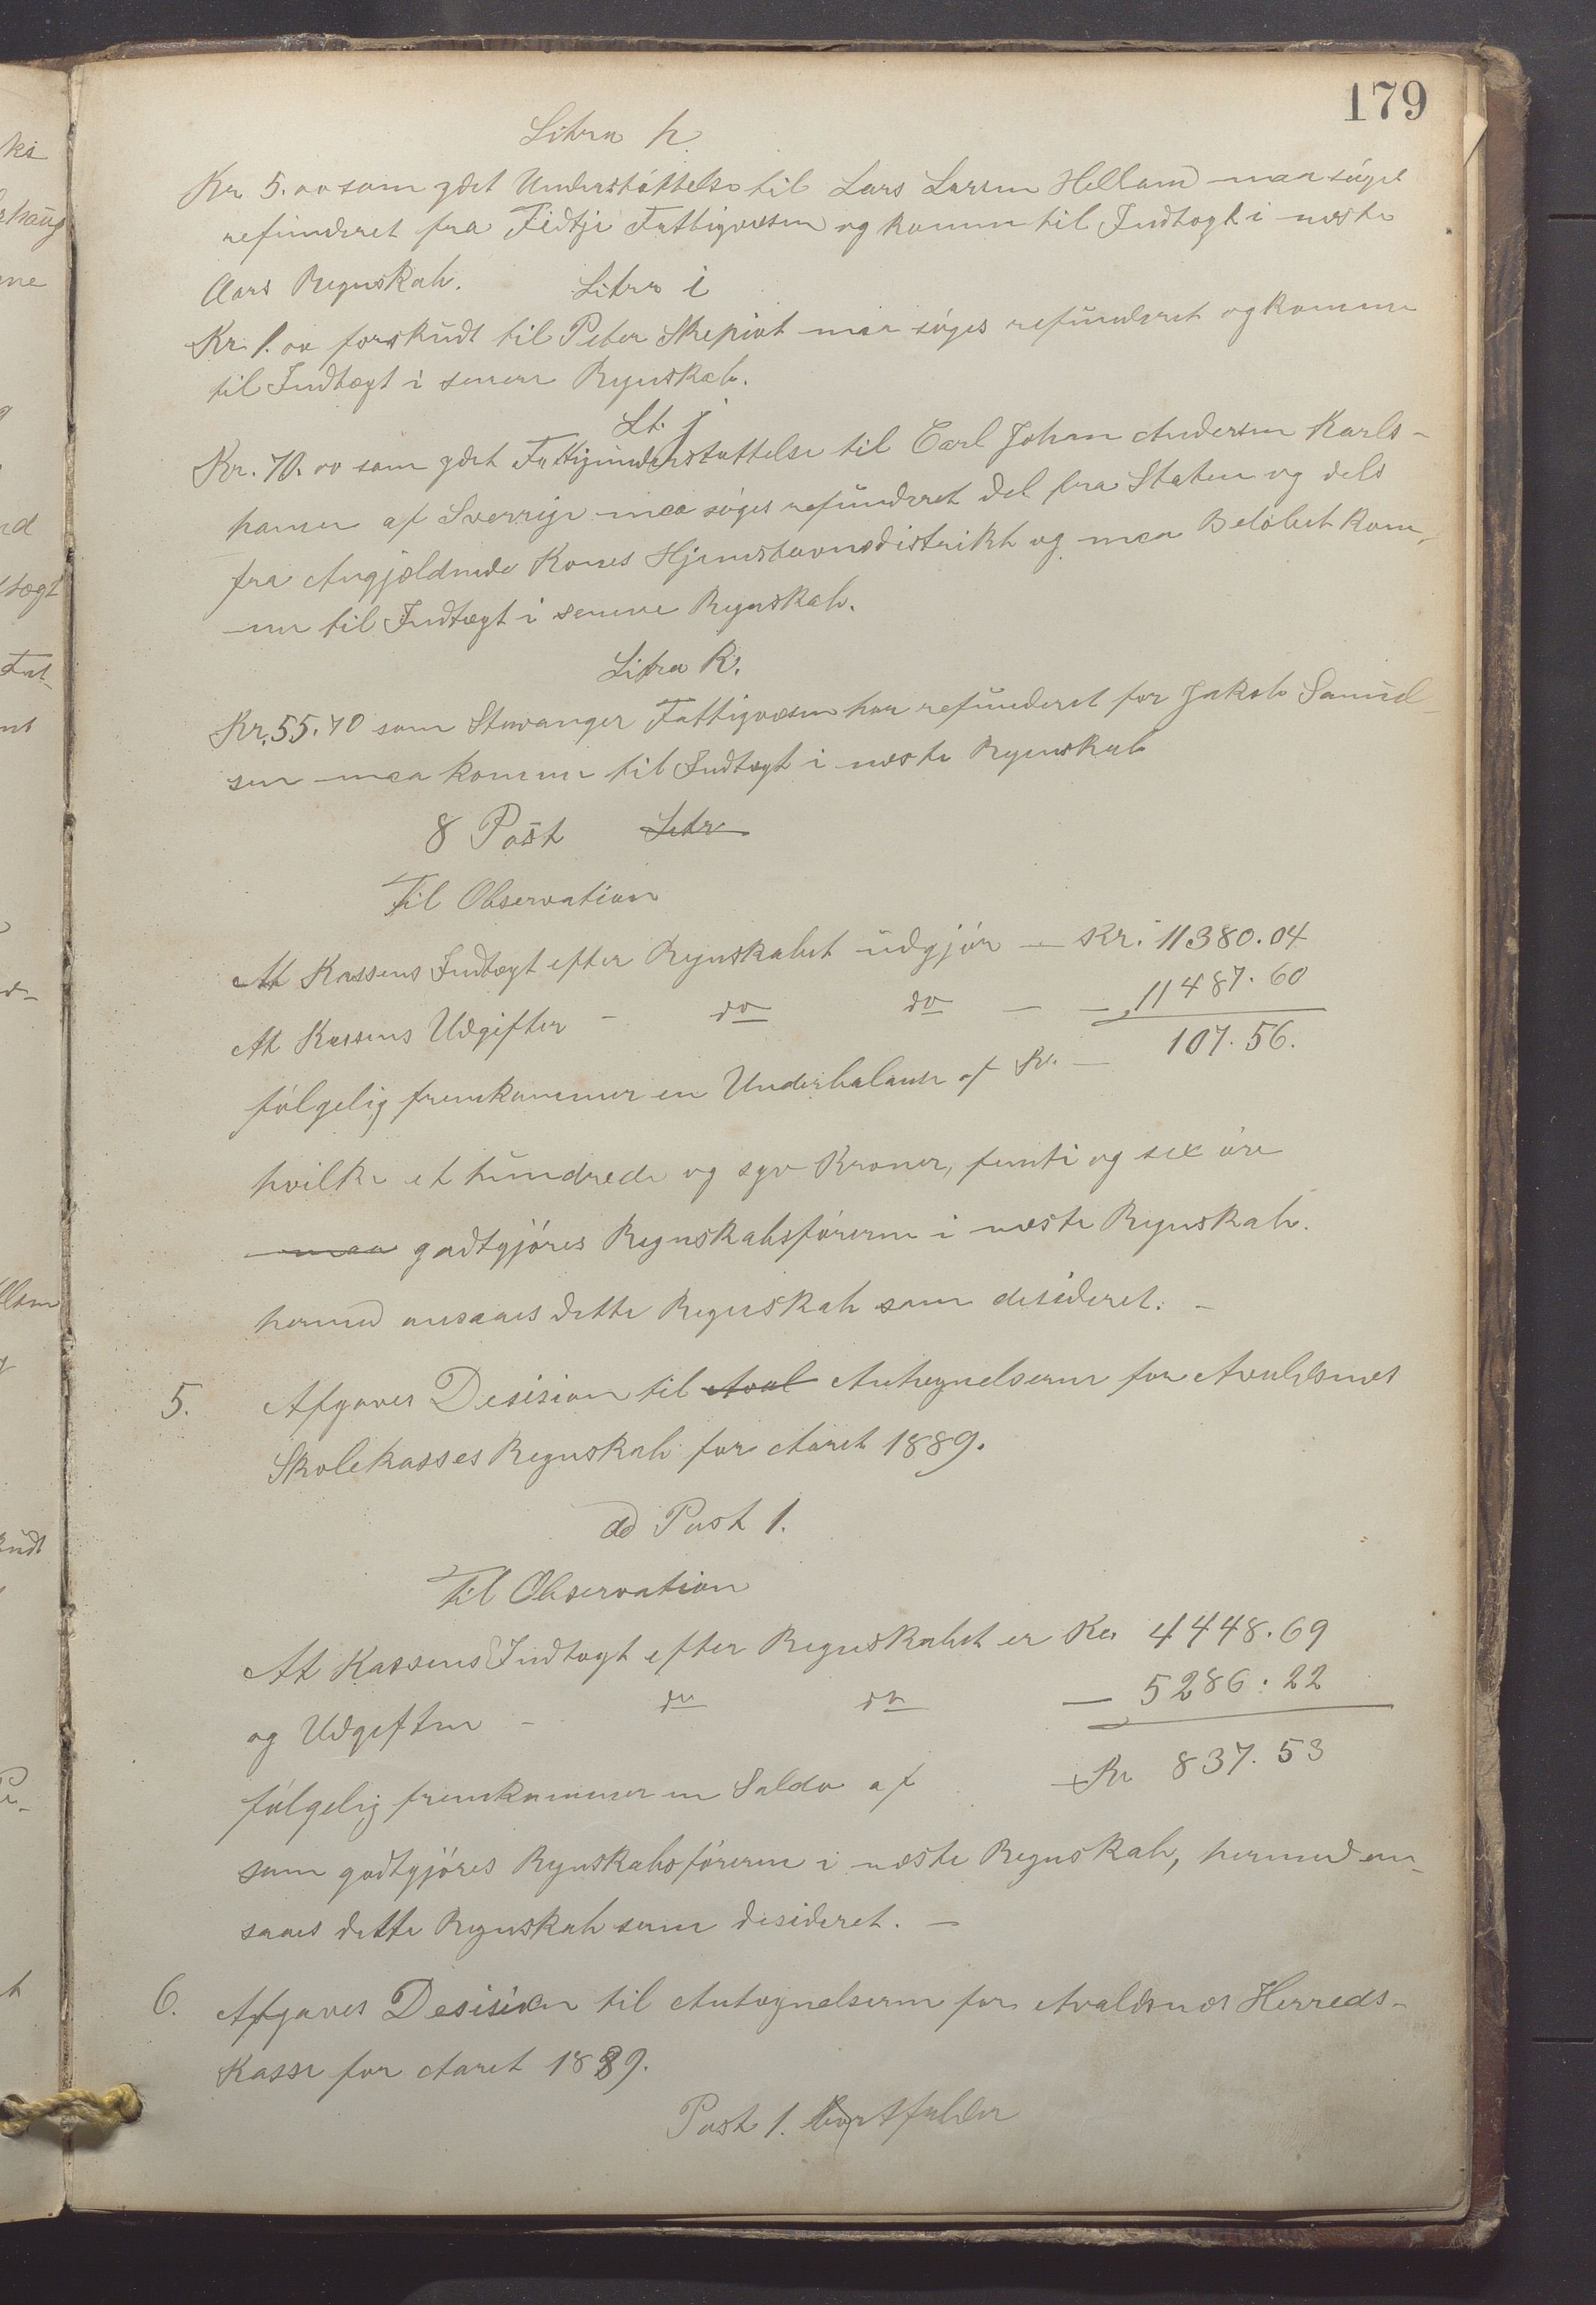 179
Litra h
Kr 5.00 som ydet Understöttelse til Lars Larsen Helland maa söges
refunderet fra Tidtje Fattigvæsen og komme til Indtægt i næste
Aars Regnskab. Litra i
Kr. 1.00 forskudt til Peter Skeprat maa söges refunderet og komme
til Indtægt i senere Regnskab.
Lt. j
Kr. 70.00 som ydet Fattigunderstøttelse til Carl Johan Andersen Karls-
hamn af Sverrige maa söges refunderet del fra Staten og dels
fra Angjældende Kones Hjemstavnsdistrikt og maa Belöbet kom-
me til Indtægt i senere Regnskab.
Litra K.
Kr. 55.70 som Stavanger Fattigvæsen har refunderet for Jakob Samuel-
sen maa komme til Indtægt i næste Regnskab
8 Post Litr
Til Observation
At Kassens Indtægt efter Regnskabet udgjör – Kr. 11380.04
At Kassens Udgifter – do do – – 11487.60
fölgelig fremkommer en Underbalanse af Kr. – 107.56.
hvilke et hundrede og syv Kroner, femti og sex öre
maa godtgjöres Regnskabsföreren i næste Regnskab.
hermed ansaaes dette Regnskab som desideret. –
5. Afgaves Desision til Aval Antegnelserne for Avaldsnes
Skolekasses Regnskab for Aaret 1889.
ad Post 1.
Til Observation
At Kassens Indtægt efter Regnskabet er Kr. 4448.69
og Udgifter – do do – 5286.22
fölgelig fremkommer en Saldo af Kr 837.53
som godtgjöres Regnskabsföreren i næste Regnskab, hermed an-
saaes dette Regnskab som desideret. –
6. Afgaves Desision til Antegnelserne for Avaldsnes Herreds-
Kasse for Aaret 1889.
Post 1. bortfalder